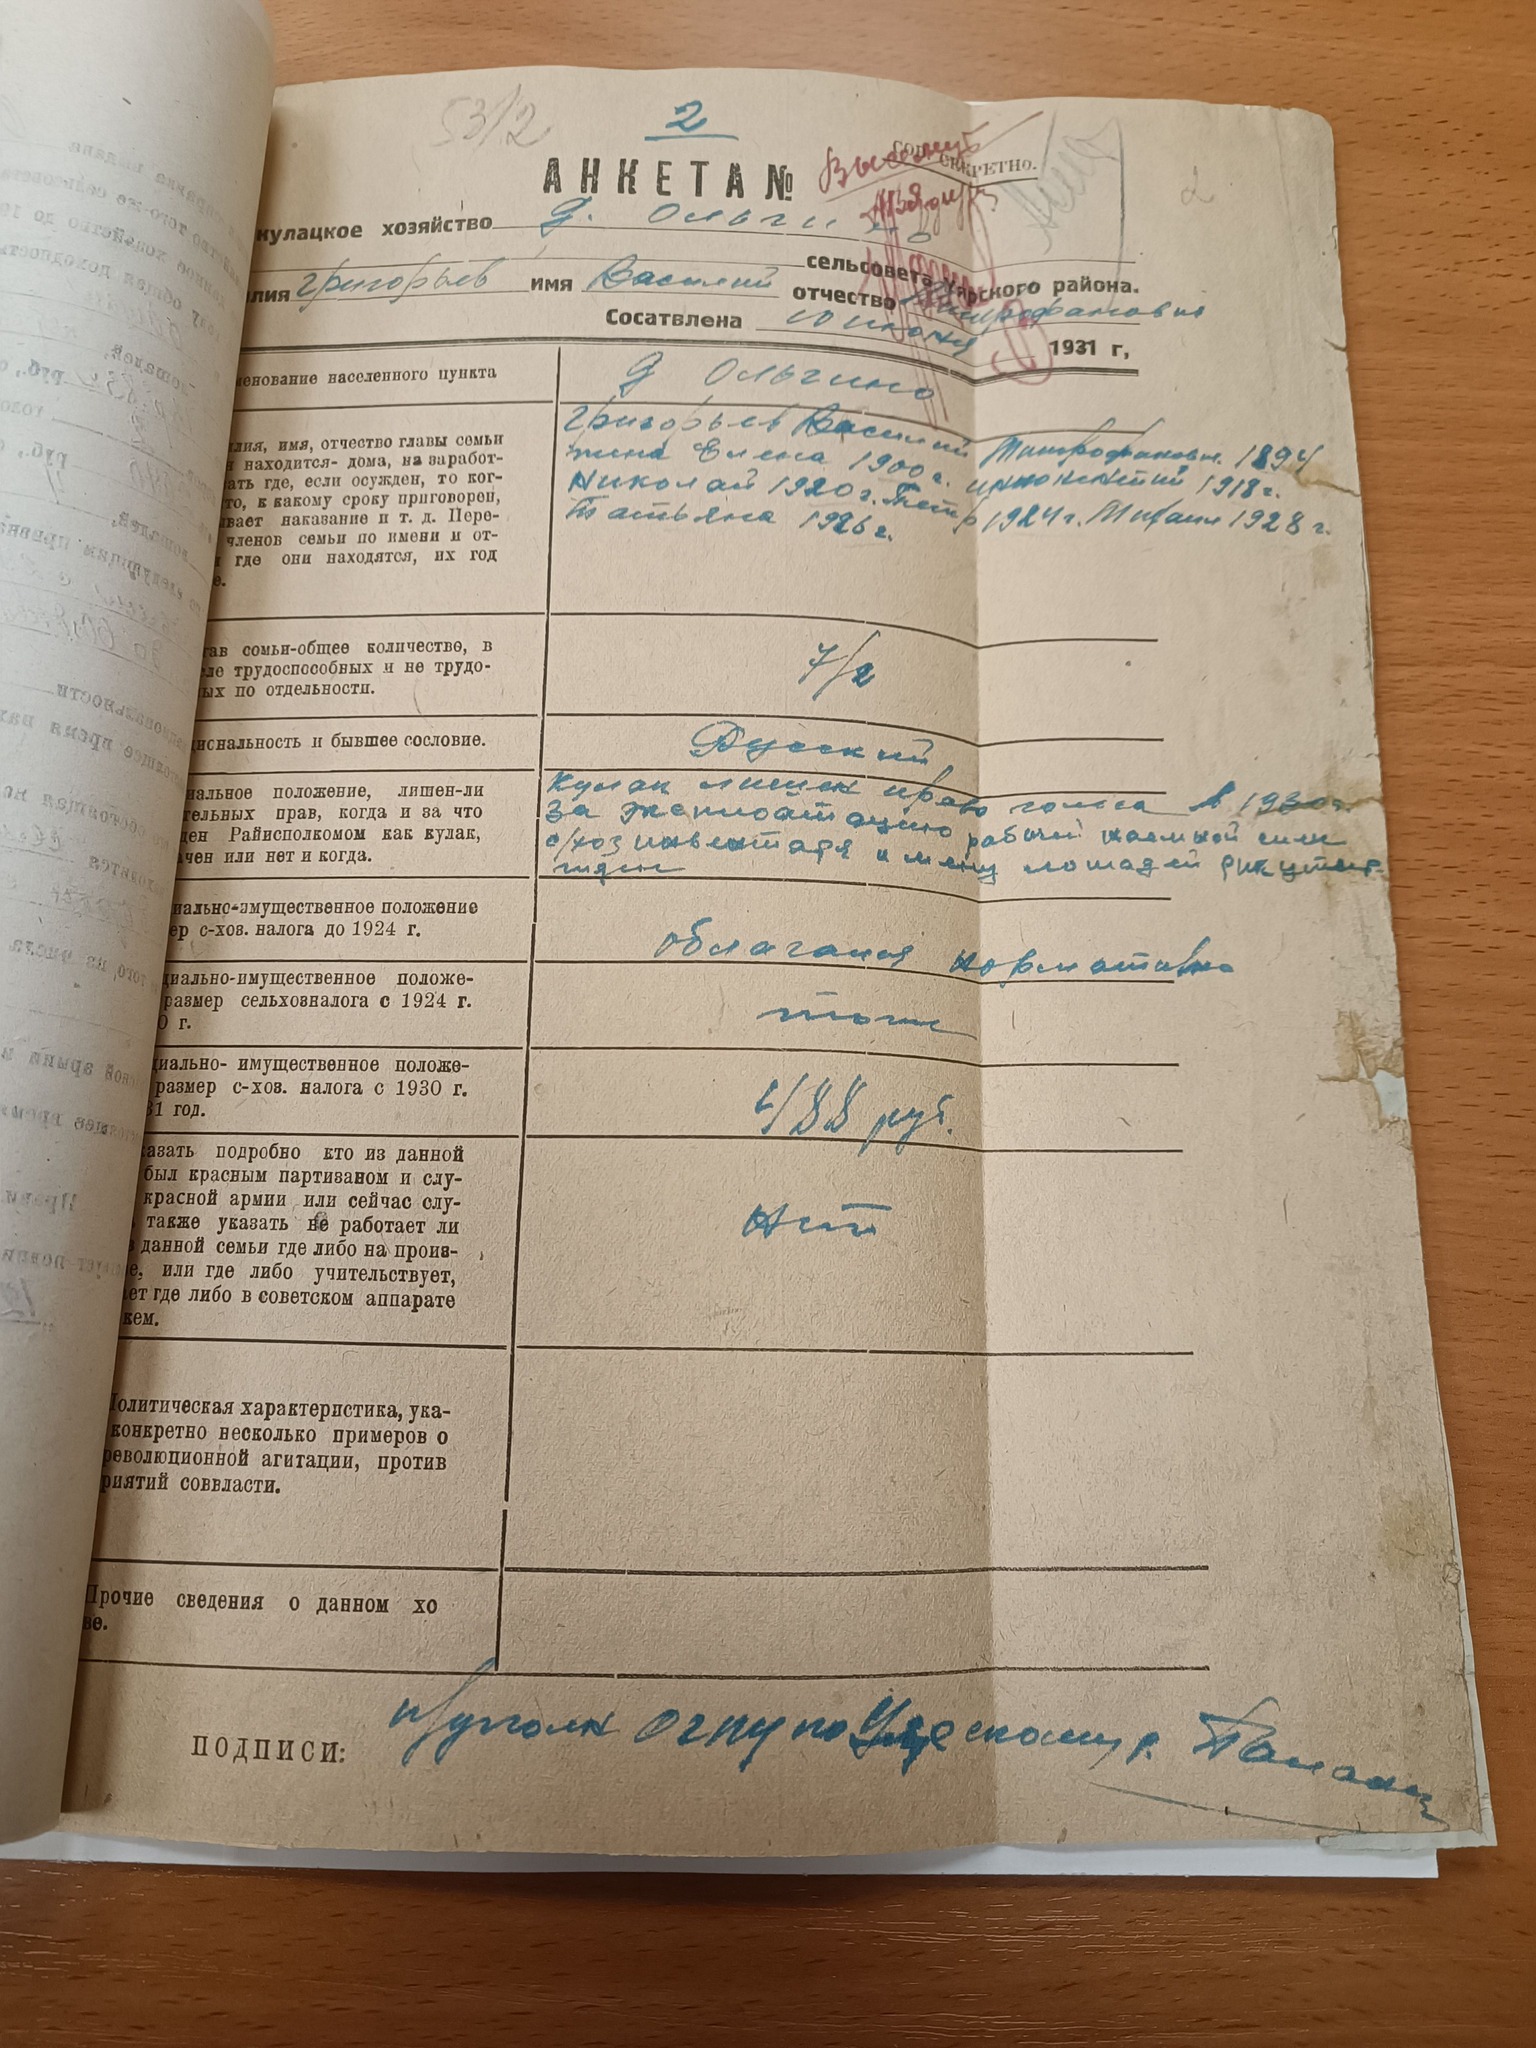 53/2
2
СОВ. СЕКРЕТНО.
АНКЕТА №
Выселить
2
кулацкое хозяйство д. Ольгино
сельсовета Уярского района.
илия Григорьев имя Василий отчество Митрофанович
Сосатвлена 10 июня 1931 г,
енование населенного пункта д Ольгино
илия, имя, отчество главы семьи
находится- дома, на заработ-
ать где, если осужден, то ког-
то, к какому сроку приговорен,
ывает наказание и т. д. Пере-
членов семьи по имени и от-
и где они находятся, их год
е.
Григорьев Василий Митрофанович. 1894
жена Елена 1900 г. инокентий 1918 г.
Николай 1920 г. Петр 1924 г. Михаил 1928 г.
Татьяна 1926 г.
тав сомьи-общее количестве, в
сле трудоспособных и не трудо-
ных по отдельности.
7/2
циснальность и бывшее сословие.
Русский
иальное положение, лишен-ли
тельных прав, когда и за что
ден Райисполкомом как кулак,
ачен или нет и когда.
Кулак лишен право голоса в 1930 г
За эксплоатацию рабочей наемной силы
с/хоз инвентаря и мену лошадей
иально-имущественное положение
ер с-хоз. налога до 1924 г.
облагался нормативно
циально-имущественное положе-
размер сельхозналога с 1924 г.
0 г.
тоже
циально- имущественное положе-
размер с-хоз. налога с 1930 г.
31 год.
188 руб.
казать подробно кто из данной
был красным партизаном и слу-
красной армии или сейчас слу-
также указать не работает ли
з данной семьи где либо на произ-
е, или где либо учительствует,
ает где либо в советском аппарате
кем.
нет
Политическая характеристика, ука-
конкретно несколько примеров о
революционной агитации, против
риятий соввласти.
Прочие сведения о данном хо
ве.
ПОДПИСИ: р/уполн ОГПУ по Уярскому р.